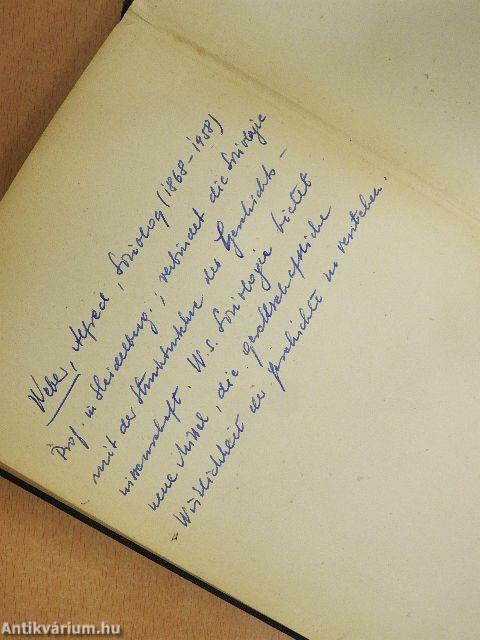 Weber, Alfred, Soziolog (1868-1958)
Prof. in Heidelberg; verbindet die Soziologie
mit der Strukturlehre der Geschichts-
wissenschaft. W.s. Soziologie bietet
neue Mittel, die gesellschaftliche
Wirklichkeit der Geschichte zu verstehen.
Antikvárium.hu